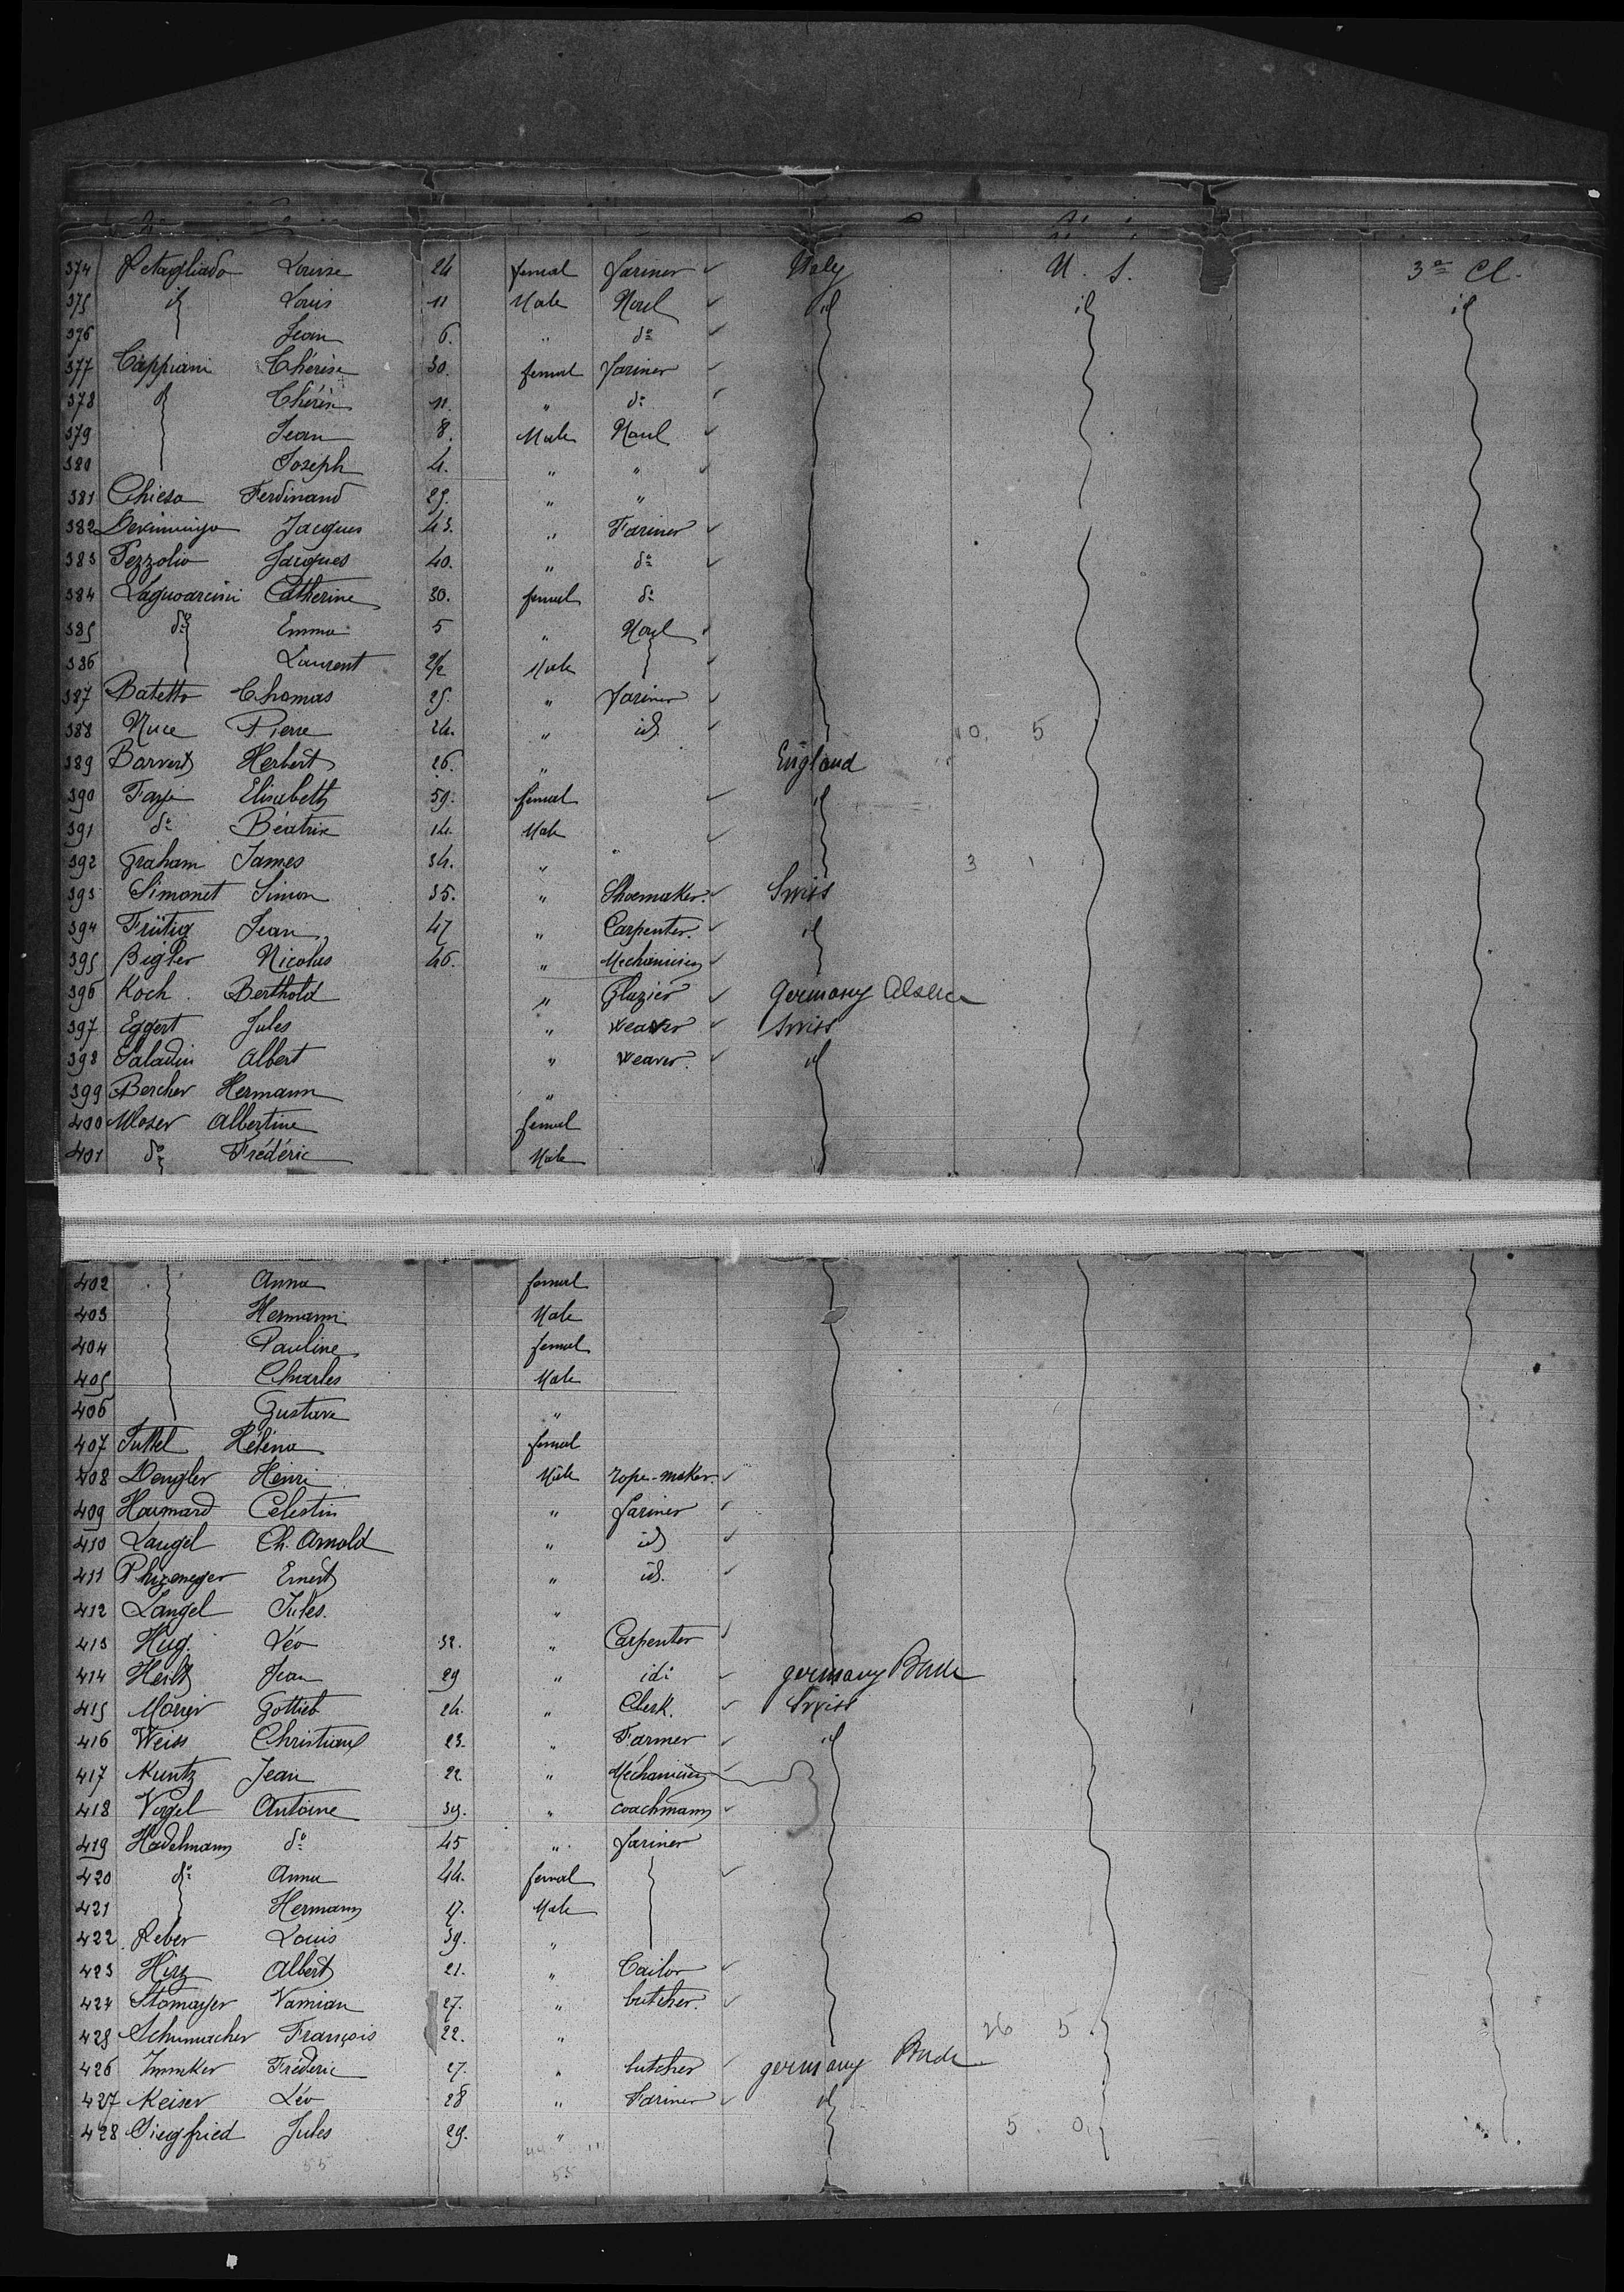 374 Petagliado Louise 24 femal farmer Italy U. S. 3e Cl.
375 id Louis 11 Male Noul id id id
376 Jean 6. " do
377 Cappiani Thérèse 30. femal farmer
378 Thérèse 11. " do
379 Jean 8. Male Noul
380 Joseph 4. " "
381 Chiesa Ferdinand 29. " "
382 Jacques 43. " Farmer
383 Pezzolio Jacques 40. " do
384 Catherine 30. femal do
385 do Emma 5 " Noul
386 Laurent 2/12 Male
387 Batetto Thomas 25. " farmer
388 Nuce Pierre 24. " id 10. 5
389 Barvert Herbert 26. " England
390 Elisabeth 59. femal id
391 do Béatrix 14. Male
392 Graham James 34. " " 3 1
393 Simonet Simon 35. " Shoemaker. Swiss
394 Frütig Jean 47 " Carpenter. id
395 Bigler Nicolas 46. " Mechanicien
396 Koch Berthold " Glazier Germany Alsace
397 Eggert Jules " weaver Swiss
398 Saladin Albert " weaver. id
399 Bercher Hermann "
400 Moser Albertine femal
401 do Frédéric Male
402 Anna femal
403 Hermann Male
404 Pauline femal
405 Charles Male
406 Gustave "
407 Tuttel Héléna femal
408 Dengler Henri Male rope-maker
409 Houmard Célestin " farmer
410 Langel Ch. Arnold " id
411 Ernest " id.
412 Langel Jules. "
413 Hug. Léo 32. " Carpenter
414 Jean 29 " id: germany Bade
415 Gottieb 24. " Clerk. Swiss
416 Weiss Christian 23. " Farmer id
417 Kuntz Jean 22. " Méchanicien
418 Vogel Antoine 39. " coachmann
419 Hadelmann do 45 " farmer
420 do Anna 44. femal
421 Hermann 17. Male
422 Reber Louis 39. "
423 Hirz Albert 21. " Tailor
424 Stomayer Damian 27. " butcher.
425 Schumacher François 22. " 26 5
426 Frédéric 27. " butcher germany Bade
427 Keiser Léo 28 " Farmer id
428 Siegfried Jules 29. " 5. 0.
55 44 11
55